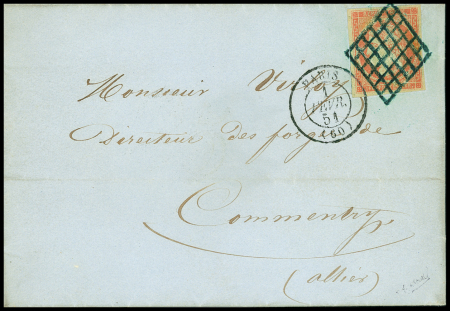 PARIS
1
FEVR.
51
(60)
Monsieur
Directeur des forges de
Commentry
(allier)